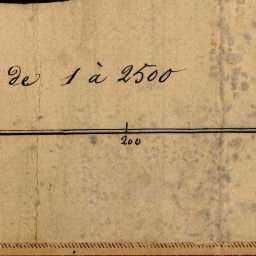 de 1 à 2500
200